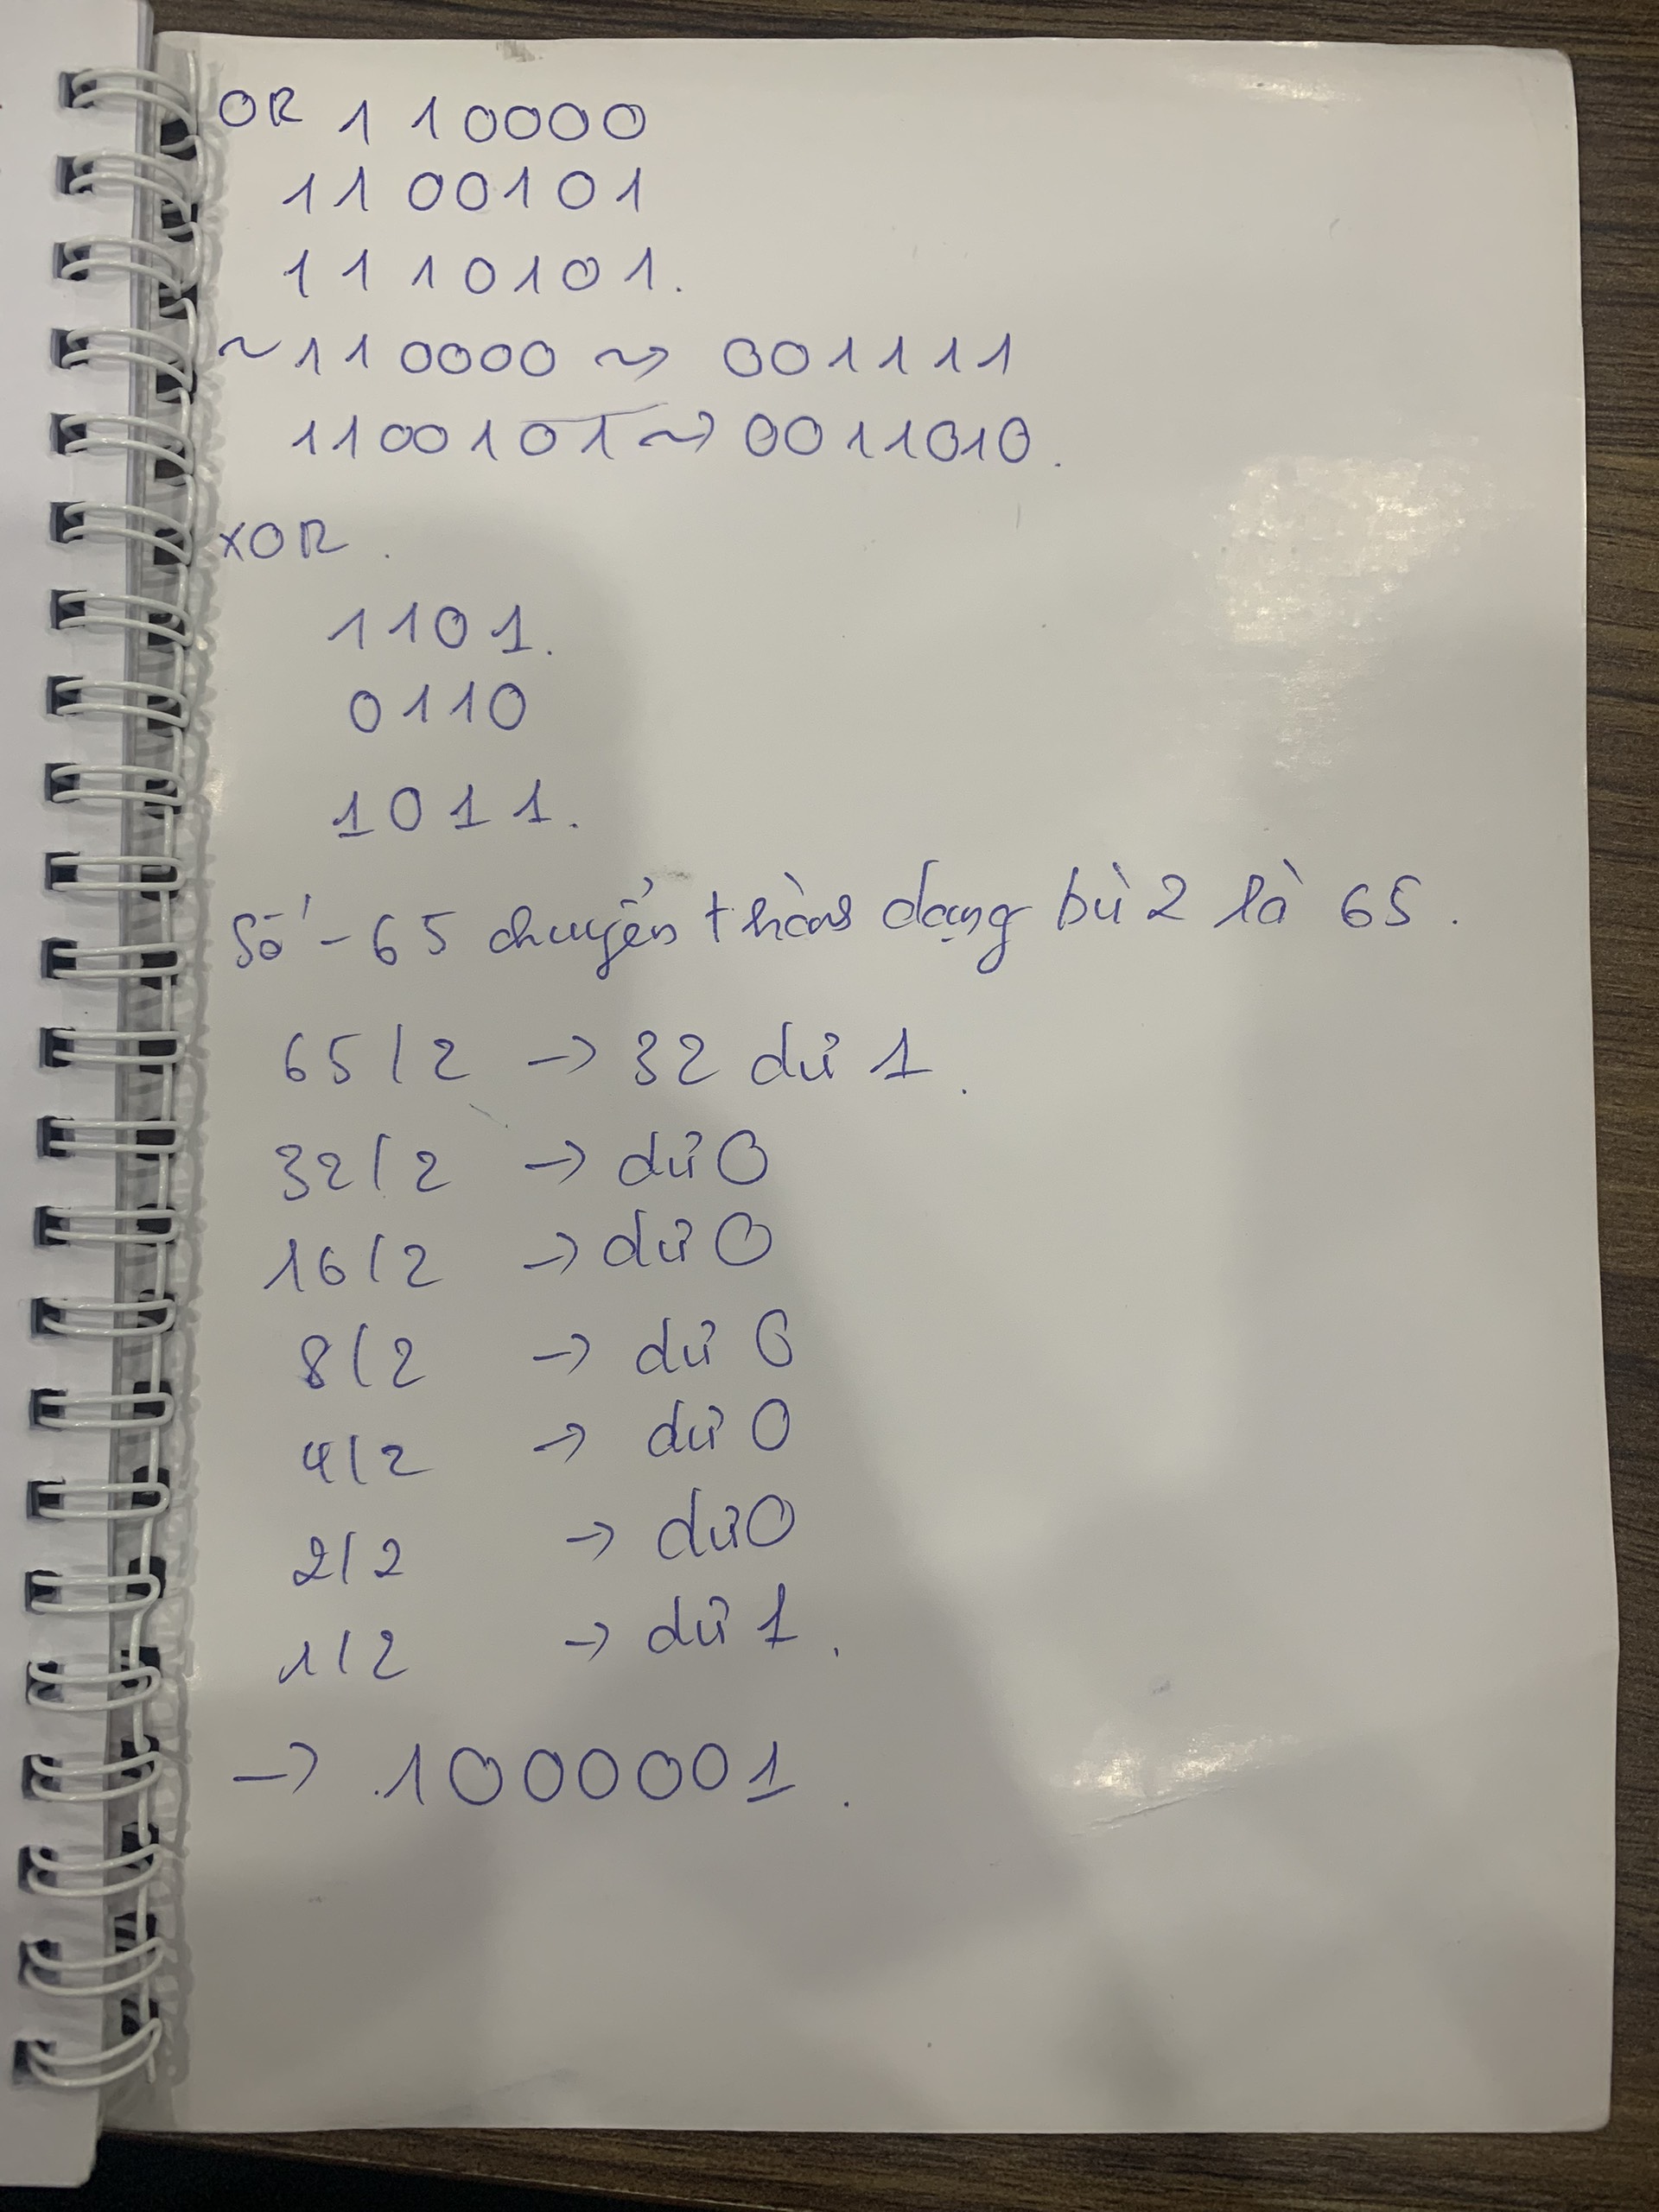 OR 110000
1100101
1110101.
~110000 ~> 001111
1100101 ~> 0011010.
XOR.
1101.
0110
1011.
Số -65 chuyển thành dạng bù 2 là 65.
65/2 -> 32 dư 1.
32/2 -> dư 0
16/2 -> dư 0
8/2 -> dư 0
4/2 -> dư 0
2/2 -> dư 0
1/2 -> dư 1.
-> 1000001.